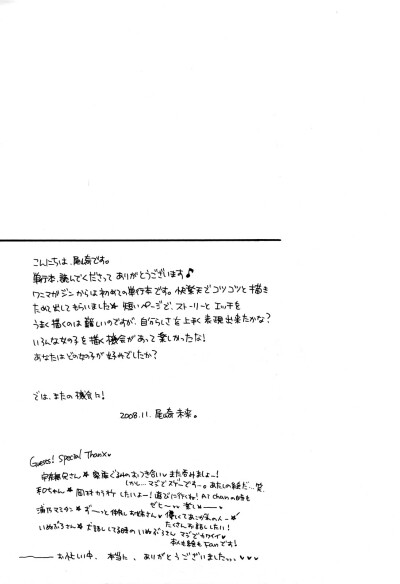 こんにちは、尾崎です。
単行本、読んでくださって ありがとうございます♪
ワニマガジンからは初めての単行本です。快楽天でコツコツと描き
ためて出してもらいました★ 短いページで、ストーリーとエッチを
うまく描くのは難しいのですが、自分らしさを上手く表現出来たかな?
いろんな女の子を描く機会があって楽しかったな!
あなたはどの女の子が好みでしたか?
では、またの機会に!
2008.11. 尾崎未来。
Guests! Special Thanx♥
また呑みましょー!
しかし…マジでスゲーですー。あたしの絵だ…笑
したいよー! 遊びに行くね! AI chanの時も
ず〜っと仲良しお姉さん★ 優しくてあこがれの人ー★
たくさんお話したい!
いぬぶろさん★ お話ししてる時の いぬぶろさん マジでカワイイ♥
本人も絵もFanです!
お忙しい中、本当に、ありがとうございました...♥♥